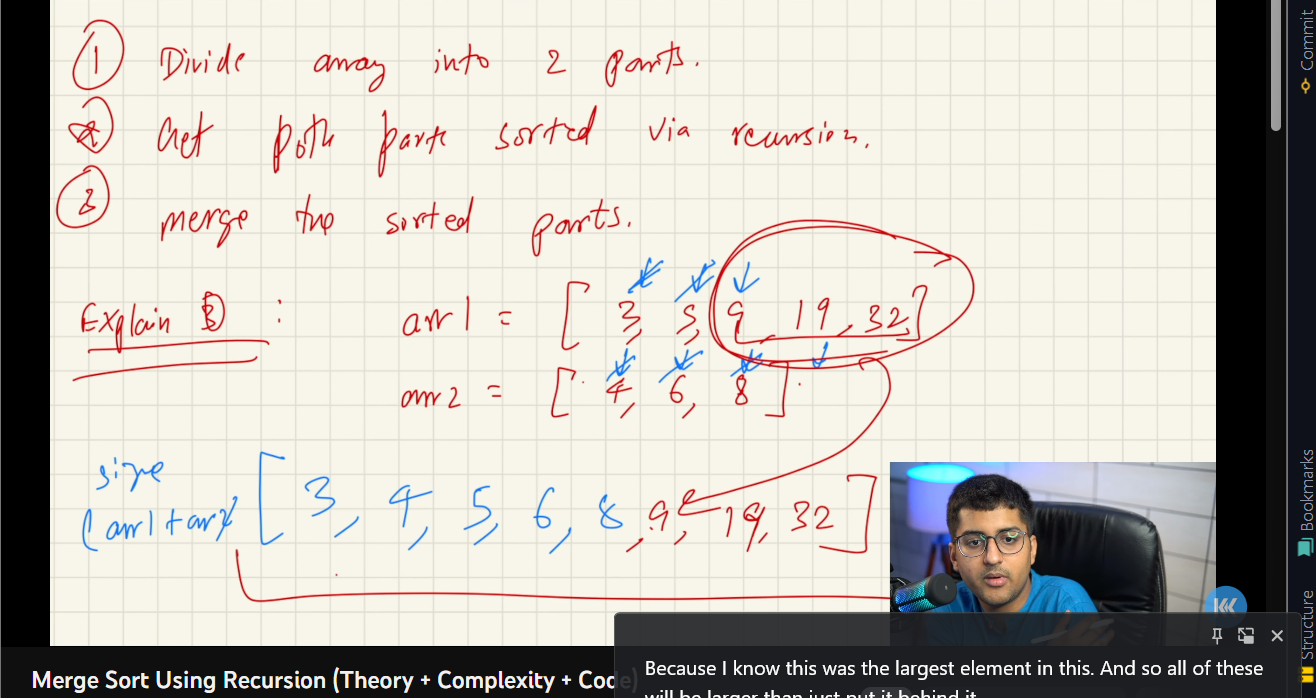 ① Divide array into 2 parts.
② Get both parts sorted via recursion.
③ merge the sorted parts.
Explain ③ :
arr1 = [ 3, 5, 9, 19, 32 ]
arr2 = [ 4, 6, 8 ]
size
(arr1 + arr2)
[ 3, 4, 5, 6, 8, 9, 19, 32 ]
Merge Sort Using Recursion (Theory + Complexity + Code)
Because I know this was the largest element in this. And so all of these
will be larger than just put it behind it
Commit
Bookmarks
Structure